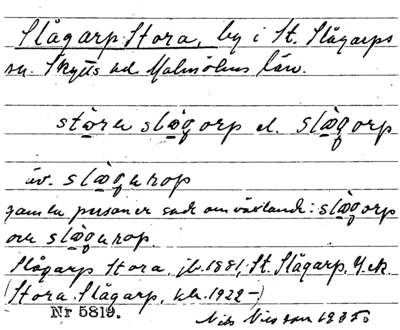 Slågarp Stora, by i St. Slågarps
sn. Skytts hd Malmöhus län.
störe slǫgorp el. slǫgorp
äv. slǫgurop
gamla personer sade omväxlande: slǫgorp
och slǫgurop.
Slågarp Stora, jb. 1881; St. Slågarp, Y.ek
(Stora Slågarp, kk. 1922-)
Nr 5819.
Nils Nilsson 1935